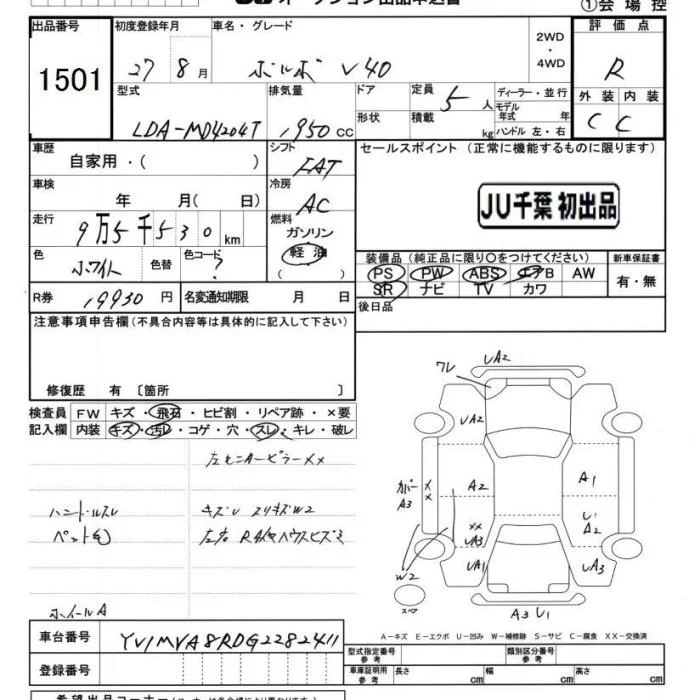 出品番号 初度登録年月 車名・グレード 2WD ・ 4WD ①会場控
評価点
1501 27 8月 ボルボ V40 R
型式 排気量 ドア 定員 5人 ディーラー・並行 外装 内装
LDA-MD4204T 1,950 CC 形状 積載 kg モデル年式 年 ハンドル 左・右 C C
車歴 シフト セールスポイント (正常に機能するものに限ります)
自家用・( ) FAT
車検 冷房 AC
年 月( 日) JU千葉 初出品
走行 9万5千530km 燃料 ガソリン 軽油 ( )
色 ホワイト 色替 色コード ? 装備品(純正品に限り○をつけてください) 新車保証書
PS PW ABS エアB AW 有・無
SR ナビ TV カワ
R券 19930円 名変通知期限 月 日 後日品
注意事項申告欄(不具合内容等は具体的に記入して下さい)
修復歴 有 〔箇所 〕
検査員記入欄 FW キズ・飛石・ヒビ割・リペア跡・×要
内装 キズ・汚レ・コゲ・穴・スレ・キレ・破レ
ハンドルスレ
ペット毛
ホイールA
UA2
ワレ
UA2
カバー A3
XX
A2
A1
U1
A2
XX
UA3
UA1
UA3
W2
スペア
A3 U1
A-キズ E-エクボ U-凹み W-補修跡 S-サビ C-腐食 XX-交換済
車台番号 YV1MVA8RDG2282411
登録番号
型式指定番号 参考 類別区分番号 参考
車庫証明用 参考 長さ cm 幅 cm 高さ cm